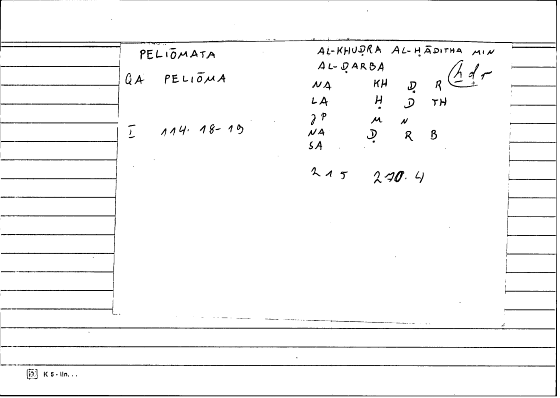 PELIŌMATA
QA PELIŌMA
I 114. 18-19
AL-KHUḌRA AL-ḤĀDITHA MIN
AL-ḌARBA
NA KH Ḍ R
LA Ḥ D TH
JP M N
NA Ḍ R B
SA
215 270.4
ḫḍr
K 5 - lin. . .